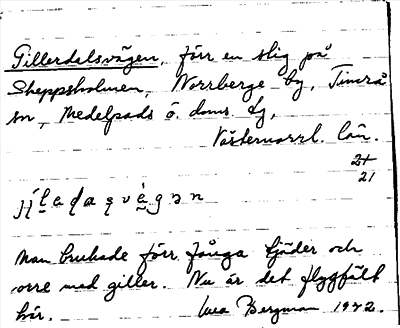 Gillerdalsvägen, förr en stig på
Skeppsholmen, Norrberge by, Timrå
sn, Medelpads ö. doms. dg,
Västernorrl. län.
21
21
Man brukade förr fånga tjäder och
orre med giller. Nu är det flygfält
här. Bergman 1942.